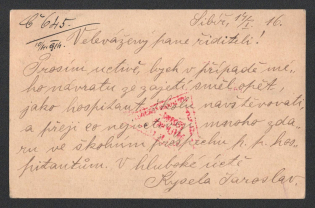 Č 645.
Sibiř, 17/I 16.
Velevážený pane řiditeli!
Prosím uctivě, bych v případě mé-
ho návratu ze zajetí směl opět,
jako hospitant navštěvovati,
a přeji co nejvíce mnoho zda-
ru ve školním prospěchu p. p. hos-
pitantům. V hluboké úctě
Kysela Jaroslav.